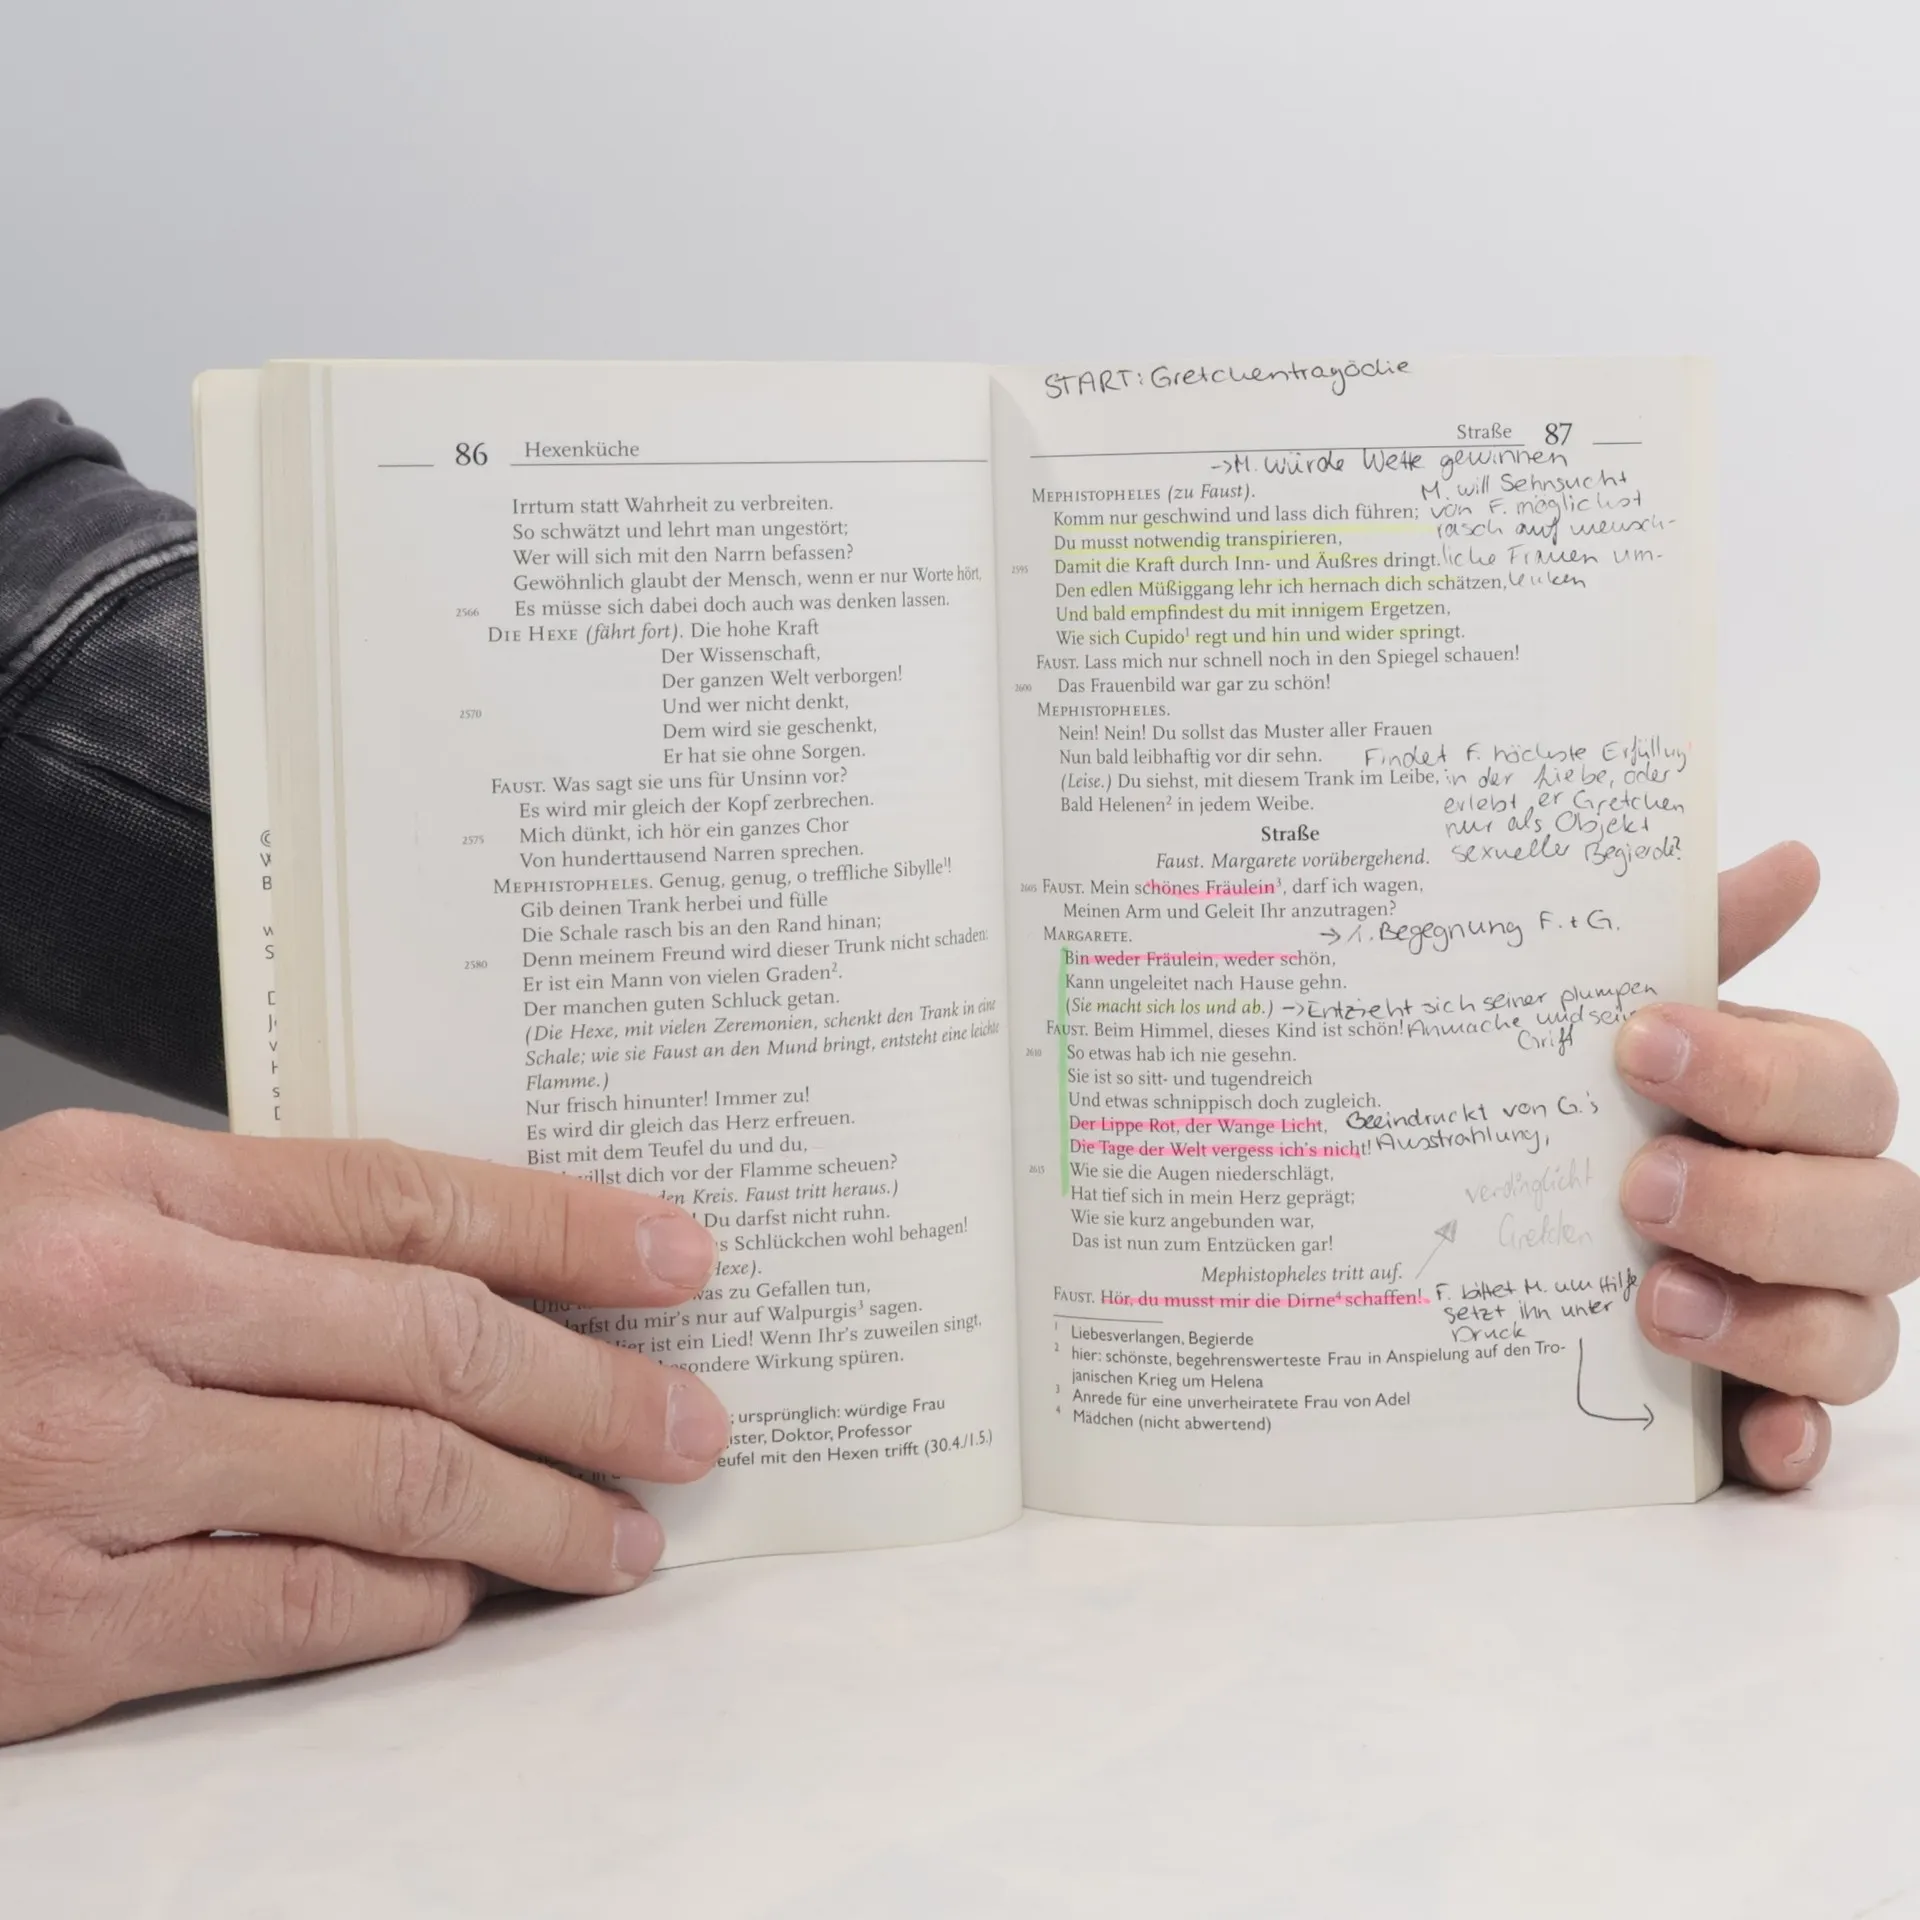 ©
W
B
w
S
D
v
H
s
D
86 Hexenküche
Irrtum statt Wahrheit zu verbreiten.
So schwätzt und lehrt man ungestört;
Wer will sich mit den Narrn befassen?
Gewöhnlich glaubt der Mensch, wenn er nur Worte hört,
2566 Es müsse sich dabei doch auch was denken lassen.
DIE HEXE (fährt fort). Die hohe Kraft
Der Wissenschaft,
Der ganzen Welt verborgen!
2570 Und wer nicht denkt,
Dem wird sie geschenkt,
Er hat sie ohne Sorgen.
FAUST. Was sagt sie uns für Unsinn vor?
Es wird mir gleich der Kopf zerbrechen.
2575 Mich dünkt, ich hör ein ganzes Chor
Von hunderttausend Narren sprechen.
MEPHISTOPHELES. Genug, genug, o treffliche Sibylle¹!
Gib deinen Trank herbei und fülle
Die Schale rasch bis an den Rand hinan;
2580 Denn meinem Freund wird dieser Trunk nicht schaden:
Er ist ein Mann von vielen Graden².
Der manchen guten Schluck getan.
(Die Hexe, mit vielen Zeremonien, schenkt den Trank in eine
Schale; wie sie Faust an den Mund bringt, entsteht eine leichte
Flamme.)
Nur frisch hinunter! Immer zu!
Es wird dir gleich das Herz erfreuen.
Bist mit dem Teufel du und du,
willst dich vor der Flamme scheuen?
den Kreis. Faust tritt heraus.)
! Du darfst nicht ruhn.
s Schlückchen wohl behagen!
Hexe).
was zu Gefallen tun,
darfst du mir's nur auf Walpurgis³ sagen.
Hier ist ein Lied! Wenn Ihr's zuweilen singt,
besondere Wirkung spüren.
; ursprünglich: würdige Frau
ister, Doktor, Professor
eufel mit den Hexen trifft (30.4./1.5.)
START: Gretchentragödie
Straße 87
->M. würde Wette gewinnen
MEPHISTOPHELES (zu Faust). M. will Sehnsucht
Komm nur geschwind und lass dich führen; von F. möglichst
Du musst notwendig transpirieren, rasch auf mensch-
2595 Damit die Kraft durch Inn- und Äußres dringt. liche Frauen um-
Den edlen Müßiggang lehr ich hernach dich schätzen, lenken
Und bald empfindest du mit innigem Ergetzen,
Wie sich Cupido¹ regt und hin und wider springt.
FAUST. Lass mich nur schnell noch in den Spiegel schauen!
2600 Das Frauenbild war gar zu schön!
MEPHISTOPHELES.
Nein! Nein! Du sollst das Muster aller Frauen
Nun bald leibhaftig vor dir sehn. Findet F. höchste Erfüllung
(Leise.) Du siehst, mit diesem Trank im Leibe, in der Liebe, oder
Bald Helenen² in jedem Weibe. erlebt er Gretchen
nur als Objekt
Straße
sexueller Begierde?
Faust. Margarete vorübergehend.
2605 FAUST. Mein schönes Fräulein³, darf ich wagen,
Meinen Arm und Geleit Ihr anzutragen?
MARGARETE. -> 1. Begegnung F. + G.
Bin weder Fräulein, weder schön,
Kann ungeleitet nach Hause gehn.
(Sie macht sich los und ab.) -> Entzieht sich seiner plumpen
FAUST. Beim Himmel, dieses Kind ist schön! Anmache und sein
Griff
2610 So etwas hab ich nie gesehn.
Sie ist so sitt- und tugendreich
Und etwas schnippisch doch zugleich.
Der Lippe Rot, der Wange Licht, Beeindruckt von G.'s
Die Tage der Welt vergess ich's nicht! Ausstrahlung,
2615 Wie sie die Augen niederschlägt,
Hat tief sich in mein Herz geprägt; verdinglicht
Wie sie kurz angebunden war,
Das ist nun zum Entzücken gar! Gretchen
Mephistopheles tritt auf.
FAUST. Hör, du musst mir die Dirne⁴ schaffen! F. bittet M. um Hilfe
setzt ihn unter
Druck
1 Liebesverlangen, Begierde
2 hier: schönste, begehrenswerteste Frau in Anspielung auf den Tro-
janischen Krieg um Helena
3 Anrede für eine unverheiratete Frau von Adel
4 Mädchen (nicht abwertend)